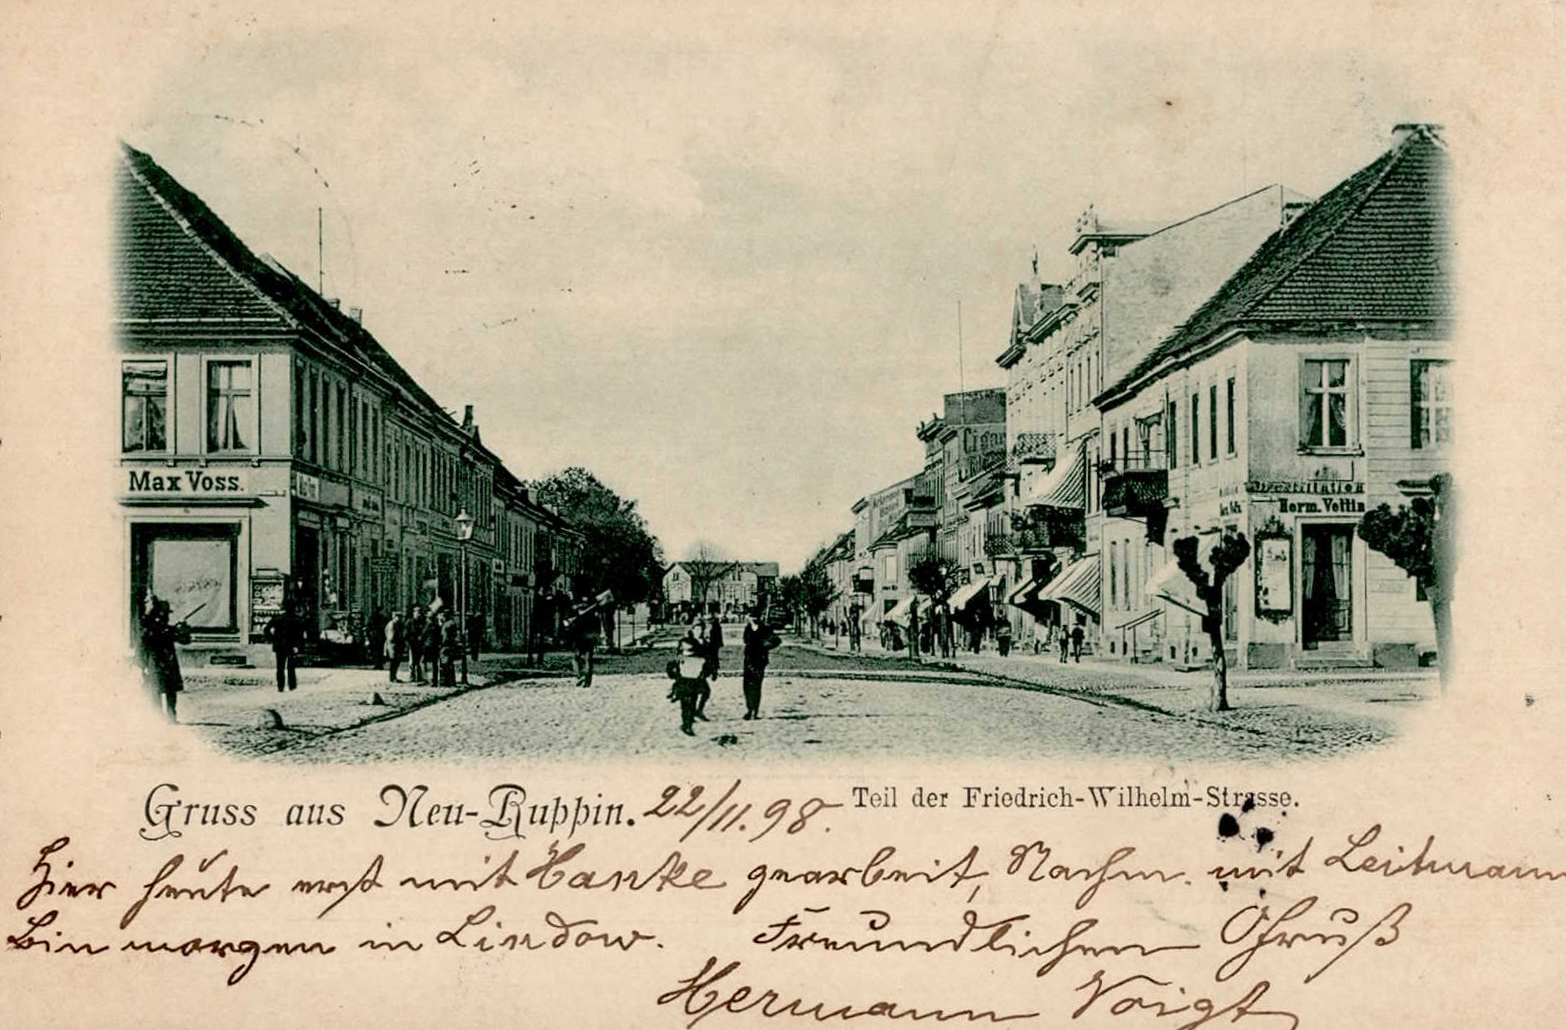 Max Voss.
Cigar
Destillation
Herm. Vettin
Gruss aus Neu-Ruppin. 22/11. 98. Teil der Friedrich-Wilhelm-Strasse.
Hier heute erst mit Hanke gearbeit, Nachm. mit Leitmann
Bin morgen in Lindow. Freundlichen Gruß
Hermann Voigt